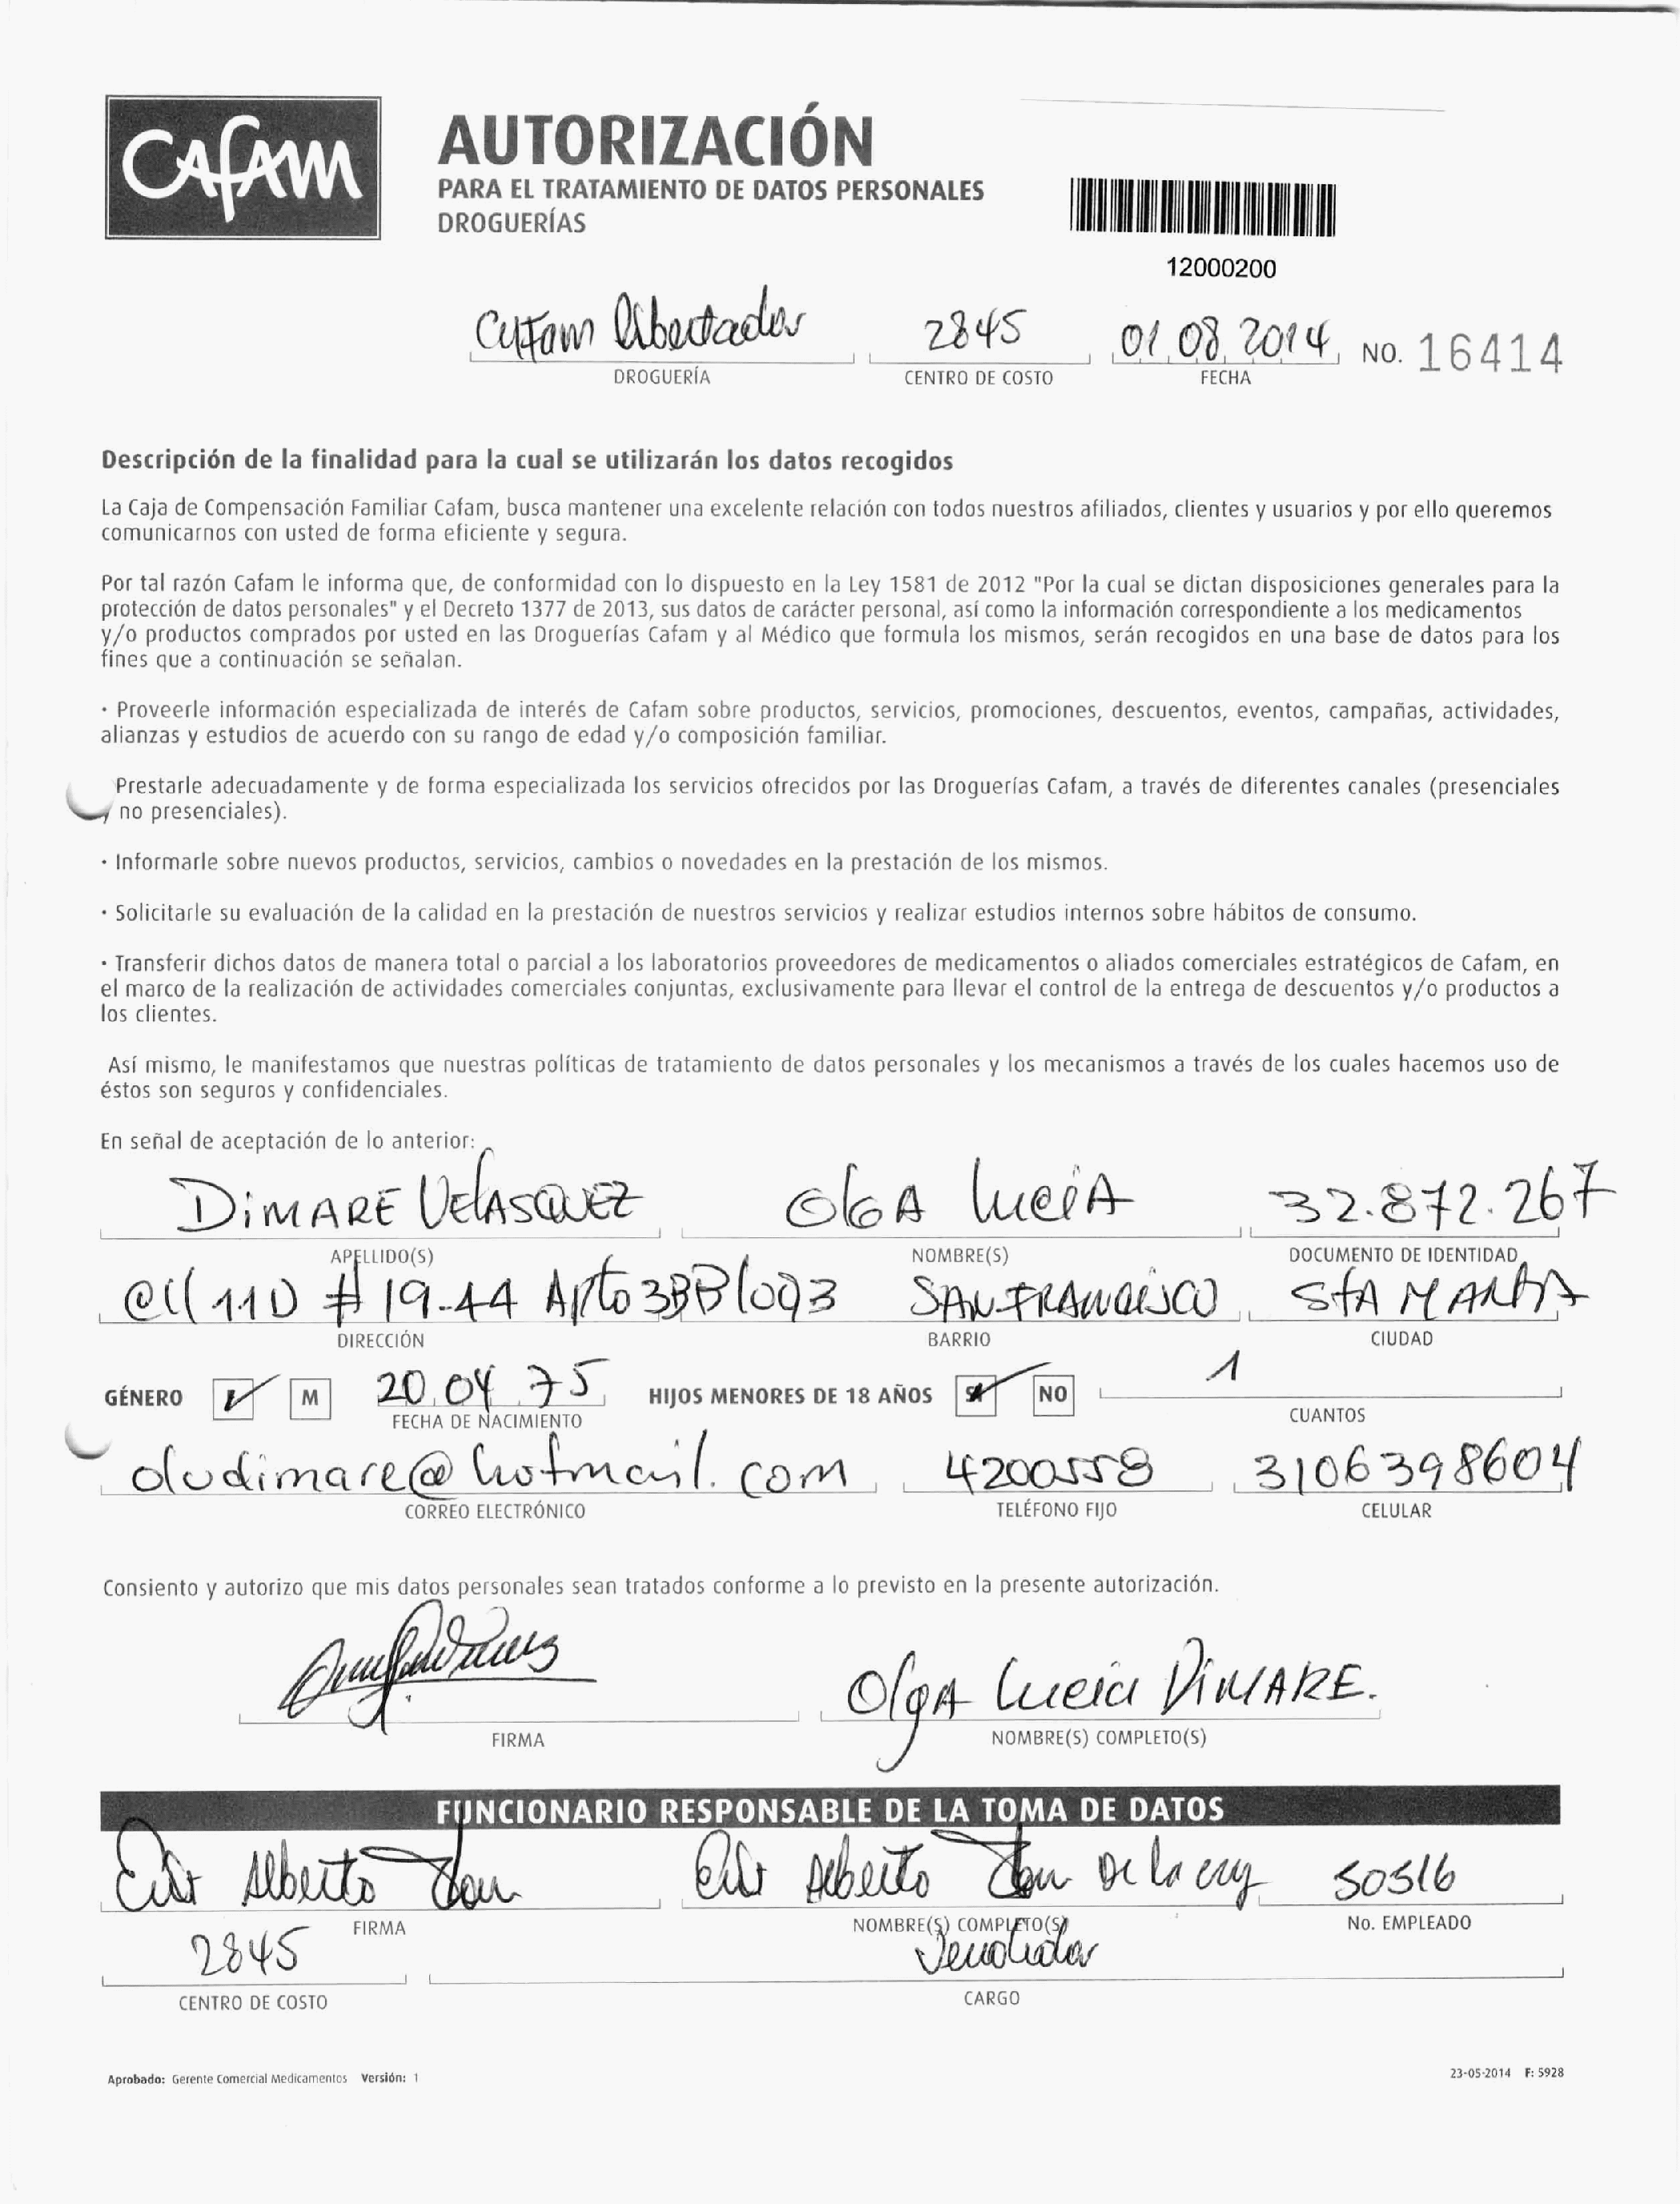 Cafam
AUTORIZACIÓN
PARA EL TRATAMIENTO DE DATOS PERSONALES
DROGUERÍAS
12000200
Cafam libertador 2845 01 08 2014 NO. 16414
DROGUERÍA CENTRO DE COSTO FECHA
Descripción de la finalidad para la cual se utilizarán los datos recogidos
La Caja de Compensación Familiar Cafam, busca mantener una excelente relación con todos nuestros afiliados, clientes y usuarios y por ello queremos
comunicarnos con usted de forma eficiente y segura.
Por tal razón Cafam le informa que, de conformidad con lo dispuesto en la Ley 1581 de 2012 "Por la cual se dictan disposiciones generales para la
protección de datos personales" y el Decreto 1377 de 2013, sus datos de carácter personal, así como la información correspondiente a los medicamentos
y/o productos comprados por usted en las Droguerías Cafam y al Médico que formula los mismos, serán recogidos en una base de datos para los
fines que a continuación se señalan.
· Proveerle información especializada de interés de Cafam sobre productos, servicios, promociones, descuentos, eventos, campañas, actividades,
alianzas y estudios de acuerdo con su rango de edad y/o composición familiar.
Prestarle adecuadamente y de forma especializada los servicios ofrecidos por las Droguerías Cafam, a través de diferentes canales (presenciales
y no presenciales).
· Informarle sobre nuevos productos, servicios, cambios o novedades en la prestación de los mismos.
· Solicitarle su evaluación de la calidad en la prestación de nuestros servicios y realizar estudios internos sobre hábitos de consumo.
· Transferir dichos datos de manera total o parcial a los laboratorios proveedores de medicamentos o aliados comerciales estratégicos de Cafam, en
el marco de la realización de actividades comerciales conjuntas, exclusivamente para llevar el control de la entrega de descuentos y/o productos a
los clientes.
Así mismo, le manifestamos que nuestras políticas de tratamiento de datos personales y los mecanismos a través de los cuales hacemos uso de
éstos son seguros y confidenciales.
En señal de aceptación de lo anterior:
DiMARE VELASQUEZ OLGA LuciA 32.872.267
APELLIDO(S) NOMBRE(S) DOCUMENTO DE IDENTIDAD
Cll 11D # 19-44 Apto 3B Bloq3 SAN FRANCISCO StA MARTA
DIRECCIÓN BARRIO CIUDAD
GÉNERO M 20 04 75 HIJOS MENORES DE 18 AÑOS SI NO 1
FECHA DE NACIMIENTO CUANTOS
oludimare@hotmail.com 4200558 3106398604
CORREO ELECTRÓNICO TELÉFONO FIJO CELULAR
Consiento y autorizo que mis datos personales sean tratados conforme a lo previsto en la presente autorización.
OlgA Lucia DiMARE.
FIRMA NOMBRE(S) COMPLETO(S)
FUNCIONARIO RESPONSABLE DE LA TOMA DE DATOS
Alberto Alberto De la cruz 50516
FIRMA NOMBRE(S) COMPLETO(S) No. EMPLEADO
2845 Vendedor
CENTRO DE COSTO CARGO
Aprobado: Gerente Comercial Medicamentos Versión: 1 23-05-2014 F: 5928